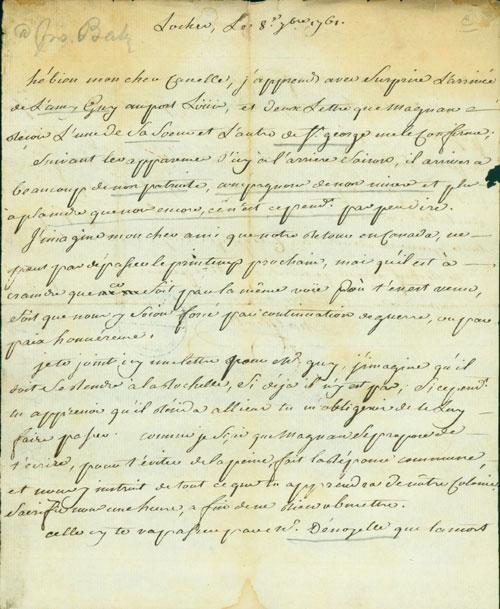 Jos. Baby
Loches, Le 8.e 7bre 1761.
hébien mon cher Canelle, j'apprend avec Surprise L'arrivée
de L'amy Guy au port Loüis, et deux Lettre que Magnan a
L'une de Sa Soeur et L'autre de St. george me le Confirme;
Suivant les apparence d'icy à l'arriere Saison, il arrivera
beaucoup de nos patriote, compagnon de nos misere et plus
a plaindre que nous encore, ce n'est cepend.t pas peu dire.
J'imagine mon cher ami que notre retour en Canada, ne
peut pas dépasser le printemp prochain, mais qu'il est à
craindre que ce Soit par la même voie d'où t'en est venu,
Soit que nous y Soions forcé par continuation de guerre, ou par
paix honnereuse.
je te joint icy une lettre pour Mr. Guy, j'imagine qu'il
doit Se rendre a la Rochelle, Si déja il n'y est pas; Si cepend.t
tu apprenois qu'il ailleur tu m'obligerois de le Luy
faire passer. comme je Sai que Magnan Se propose de
t'écrire, pour t'éviter de la peine, fait la réponse commune,
et nous instruit de tout ce que tu apprendra de nôtre Colonie
Sacrifie nous une heure, afin de ne Rien obmettre.
celle cy te va passer par Mr. Dénoyelle que la mort